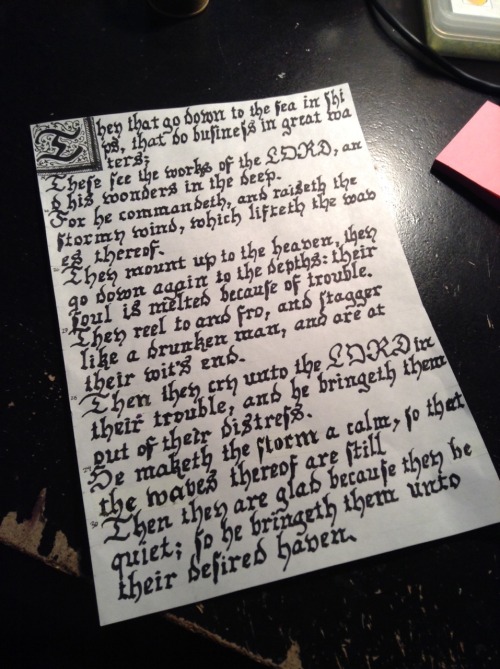 They that go down to the sea in shi
ps, that do business in great wa
ters;
These see the works of the LORD, an
d his wonders in the deep.
For he commandeth, and raiseth the
stormy wind, which lifteth the wav
es thereof.
They mount up to the heaven, they
go down again to the depths: their
soul is melted because of trouble.
They reel to and fro, and stagger
like a drunken man, and are at
their wit's end.
28 Then they cry unto the LORD in
their trouble, and he bringeth them
out of their distress.
29 He maketh the storm a calm, so that
the waves thereof are still
30 Then they are glad because they be
quiet; so he bringeth them unto
their desired haven.